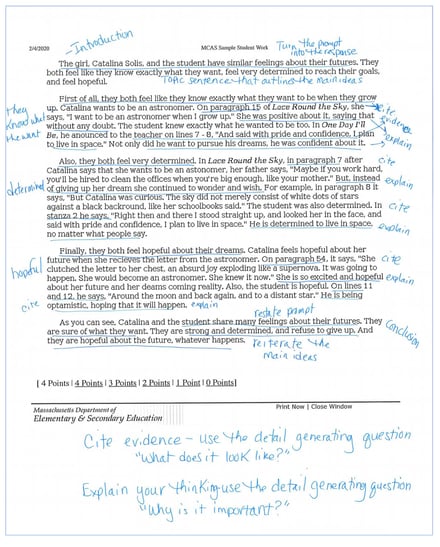 -Introduction
2/4/2020
MCAS Sample Student Work
Turn the prompt
into the response
The girl, Catalina Solis, and the student have similar feelings about their futures. They
both feel like they know exactly what they want, feel very determined to reach their goals,
and feel hopeful.
Topic sentence that outlines the main ideas
First of all, they both feel like they know exactly what they want to be when they grow
up. Catalina wants to be an astronomer. On paragraph 15 of Lace Round the Sky, she
says, "I want to be an astronomer when I grow up." She was positive about it, saying that
without any doubt. The student knew exactly what he wanted to be too. In One Day I'll
Be, he announced to the teacher on lines 7 - 8, "And said with pride and confidence, I plan
to live in space." Not only did he want to pursue his dreams, he was confident about it.
they
know what
the want
cite
evidence
explain
Also, they both feel very determined. In Lace Round the Sky, in paragraph 7 after
Catalina says that she wants to be an astronomer, her father says, "Maybe if you work hard,
you'll be hired to clean the offices when you're big enough, like your mother." But, instead
of giving up her dream she continued to wonder and wish. For example, in paragraph 8 it
says, "But Catalina was curious. The sky did not merely consist of white dots of stars
against a black background, like her schoolbooks said." The student was also determined. In
stanza 2 he says, "Right then and there I stood straight up, and looked her in the face, and
said with pride and confidence, I plan to live in space." He is determined to live in space,
no matter what people say.
determined
cite
explain
cite
explain
Finally, they both feel hopeful about their dreams. Catalina feels hopeful about her
future when she recieves the letter from the astronomer. On paragraph 54, it says, "She
clutched the letter to her chest, an absurd joy exploding like a supernova. It was going to
happen. She would become an astronomer. She knew it now." She is so excited and hopeful
about her future and her deams coming reality. Also, the student is hopeful. On lines 11
and 12, he says, "Around the moon and back again, and to a distant star." He is being
optimistic, hoping that it will happen.
hopeful
cite
explain
cite
explain
restate prompt
As you can see, Catalina and the student share many feelings about their futures. They
are sure of what they want. They are strong and determined, and refuse to give up. And
they are hopeful about the future, whatever happens.
Conclusion
reiterate the
main ideas
[ 4 Points | 4 Points | 3 Points | 2 Points | 1 Point | 0 Points]
Massachusetts Department of
Elementary & Secondary Education
Print Now | Close Window
Cite evidence - use the detail generating question
"What does it look like?"
Explain your thinking-use the detail generating question
"Why is it important?"